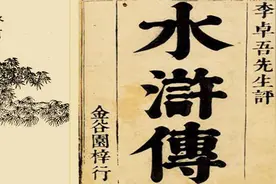 李卓吾先生評
水滸傳
金谷園梓行